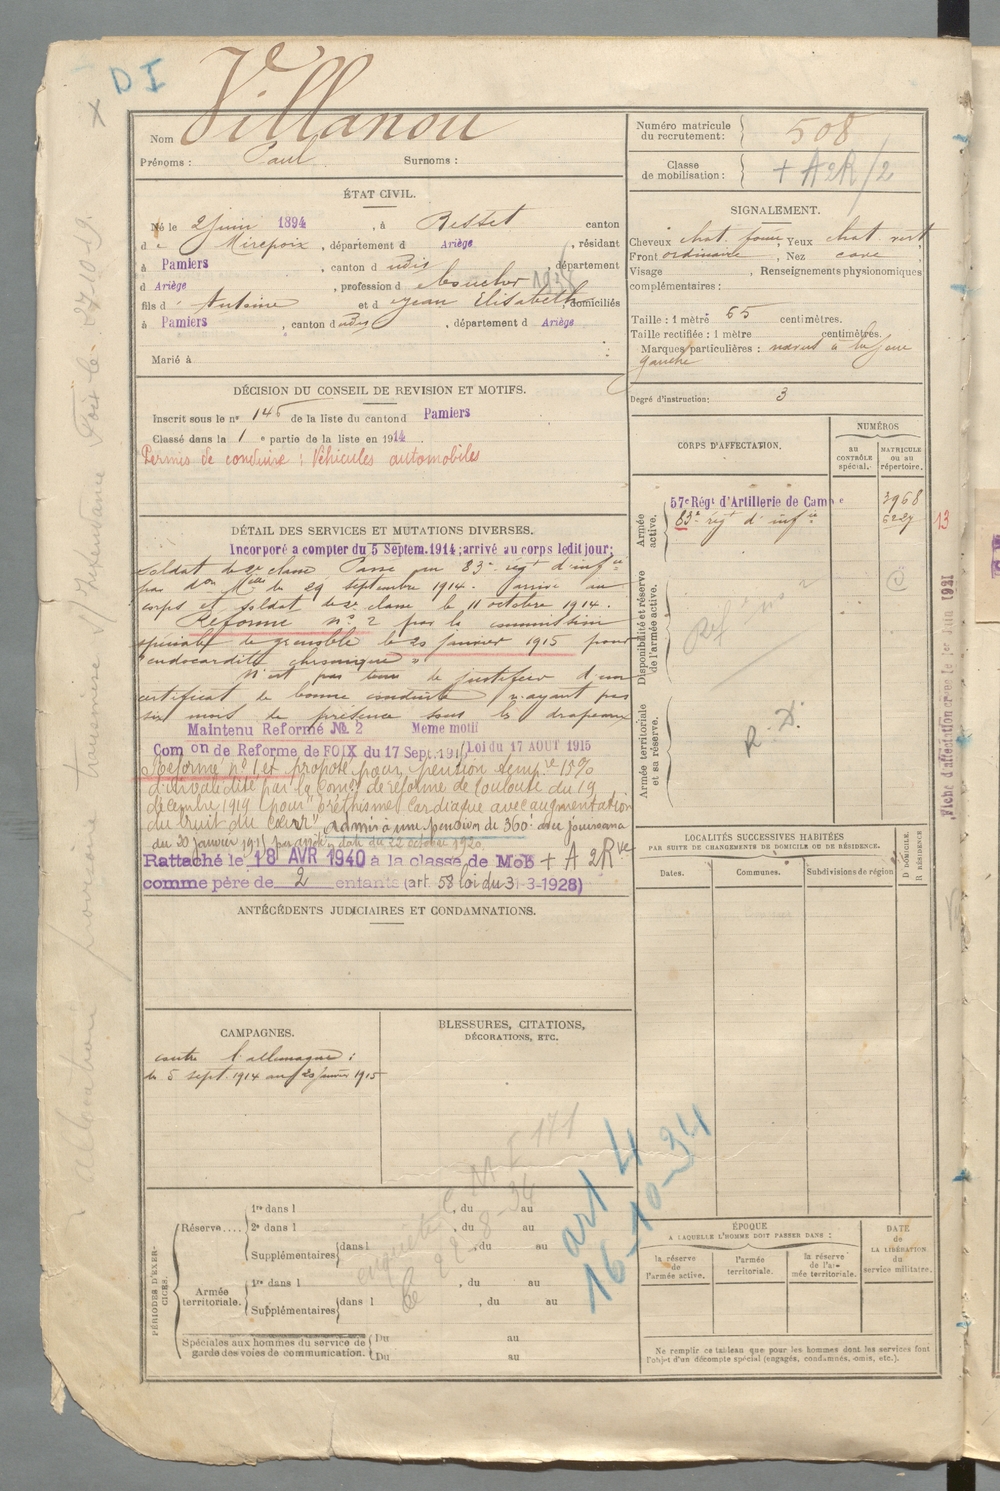 D I
Nom Villanou
Prénoms : Paul Surnoms :
ÉTAT CIVIL.
Né le 2 juin 1894, à Besset canton
de Mirepoix, département d Ariège, résidant
à Pamiers, canton d udis, département
d Ariège, profession d boucher 1938
fils d' Antoine et d Jean Élisabeth, domiciliés
à Pamiers, canton d udis, département d Ariège
Marié à
DÉCISION DU CONSEIL DE REVISION ET MOTIFS.
Inscrit sous le n° 145 de la liste du canton d Pamiers
Classé dans la 1e partie de la liste en 1914.
Permis de conduire : Véhicules automobiles
DÉTAIL DES SERVICES ET MUTATIONS DIVERSES.
Incorporé a compter du 5 Septem. 1914; arrivé au corps ledit jour;
soldat de 2e classe Passé au 83e régt d'infie
par don Melle du 29 septembre 1914. arrivé au
corps et soldat de 2e classe le 11 octobre 1914.
Réformé n° 2 par la commission
spéciale de grenoble le 20 janvier 1915 pour
"endocardite chronique"
N'est pas tenu de justifier d'un
certificat de bonne conduite n'ayant pas
six mois de présence sous les drapeaux
Maintenu Reformé № 2 Meme motif
Com on de Reforme de FOIX du 17 Sept. 1915 Loi du 17 AOUT 1915
Réformé n° 1 et proposé pour pension tempre 15%
d'invalidité par la Comon de réforme de Toulouse du 19
décembre 1919 pour "éréthisme cardiaque avec augmentation
du bruit du cœur". Admis à une pension de 360f avec jouissance
du 20 janvier 1915 date du 22 octobre 1920.
Rattaché le 18 AVR 1940 à la classe de Mob + A 2 Rve
comme père de 2 enfants (art. 58 loi du 31-3-1928)
ANTÉCÉDENTS JUDICIAIRES ET CONDAMNATIONS.
CAMPAGNES.
contre l'allemagne :
du 5 sept. 1914 au 20 janvier 1915
BLESSURES, CITATIONS,
DÉCORATIONS, ETC.
enquête C. M F 171
le 22-8-34
art 4
16-10-34
PÉRIODES D'EXERCICES.
Réserve....
1re dans l , du au
2e dans l , du au
Supplémentaires dans l , du au
Armée territoriale.
1re dans l , du au
Supplémentaires dans l , du au
Spéciales aux hommes du service de garde des voies de communication.
Du au
Du au
Numéro matricule du recrutement : 508
Classe de mobilisation : + A2R/2
SIGNALEMENT.
Cheveux chat. foncé, Yeux chat vert
Front ordinaire, Nez cave
Visage , Renseignements physionomiques
complémentaires :
Taille : 1 mètre 65 centimètres.
Taille rectifiée : 1 mètre centimètres.
Marques particulières : naevus à la joue
gauche
Degré d'instruction: 3
CORPS D'AFFECTATION.
NUMÉROS
au CONTRÔLE spécial.
MATRICULE ou au répertoire.
Armée active.
57e Régt d'Artillerie de Camp e 3968
83e régt d'infie 13
Disponibilité et réserve de l'armée active.
Ref n° 2
Armée territoriale et sa réserve.
R. D.
LOCALITÉS SUCCESSIVES HABITÉES
PAR SUITE DE CHANGEMENTS DE DOMICILE OU DE RÉSIDENCE.
Dates. Communes. Subdivisions de région
D DOMICILE. R RÉSIDENCE
ÉPOQUE
A LAQUELLE L'HOMME DOIT PASSER DANS :
la réserve de l'armée active.
l'armée territoriale.
la réserve de l'armée territoriale.
DATE de LA LIBÉRATION du service militaire.
Ne remplir ce tableau que pour les hommes dont les services font
l'objet d'un décompte spécial (engagés, condamnés, omis, etc.).
Fiche d'affectation créée le 1er Juin 1921